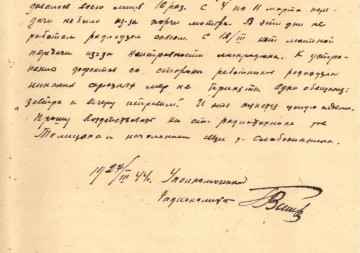 давалось всего лишь 10 раз. С 4 по 11 марта пере-
дачи не было из-за порчи мотора. В эти дни не
работал радиоузел совсем. С 18/III нет местной
передачи из-за неисправности микрофона. К устра-
нению дефектов со стороны работников радиоузла
никаких серьезных мер не принято. Одни обещания:
"завтра к вечеру исправим". И это тянется целую неделю.
Прошу воздействовать на ст. радиотехника тов
и начальника связи т.
19 27/III 44 г. Уполномоченный
Радиокомитета